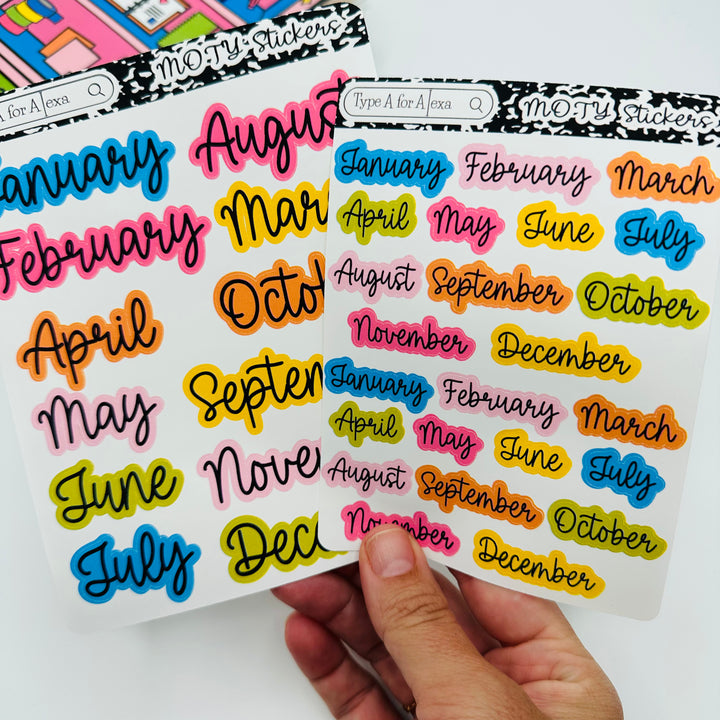 MOTY Stickers
A for Alexa
January August
February Mar
April Octo
May Septem
June Nove
July Dec
Type A for Alexa MOTY Stickers
January February March
April May June July
August September October
November December
January February March
April May June July
August September October
November December